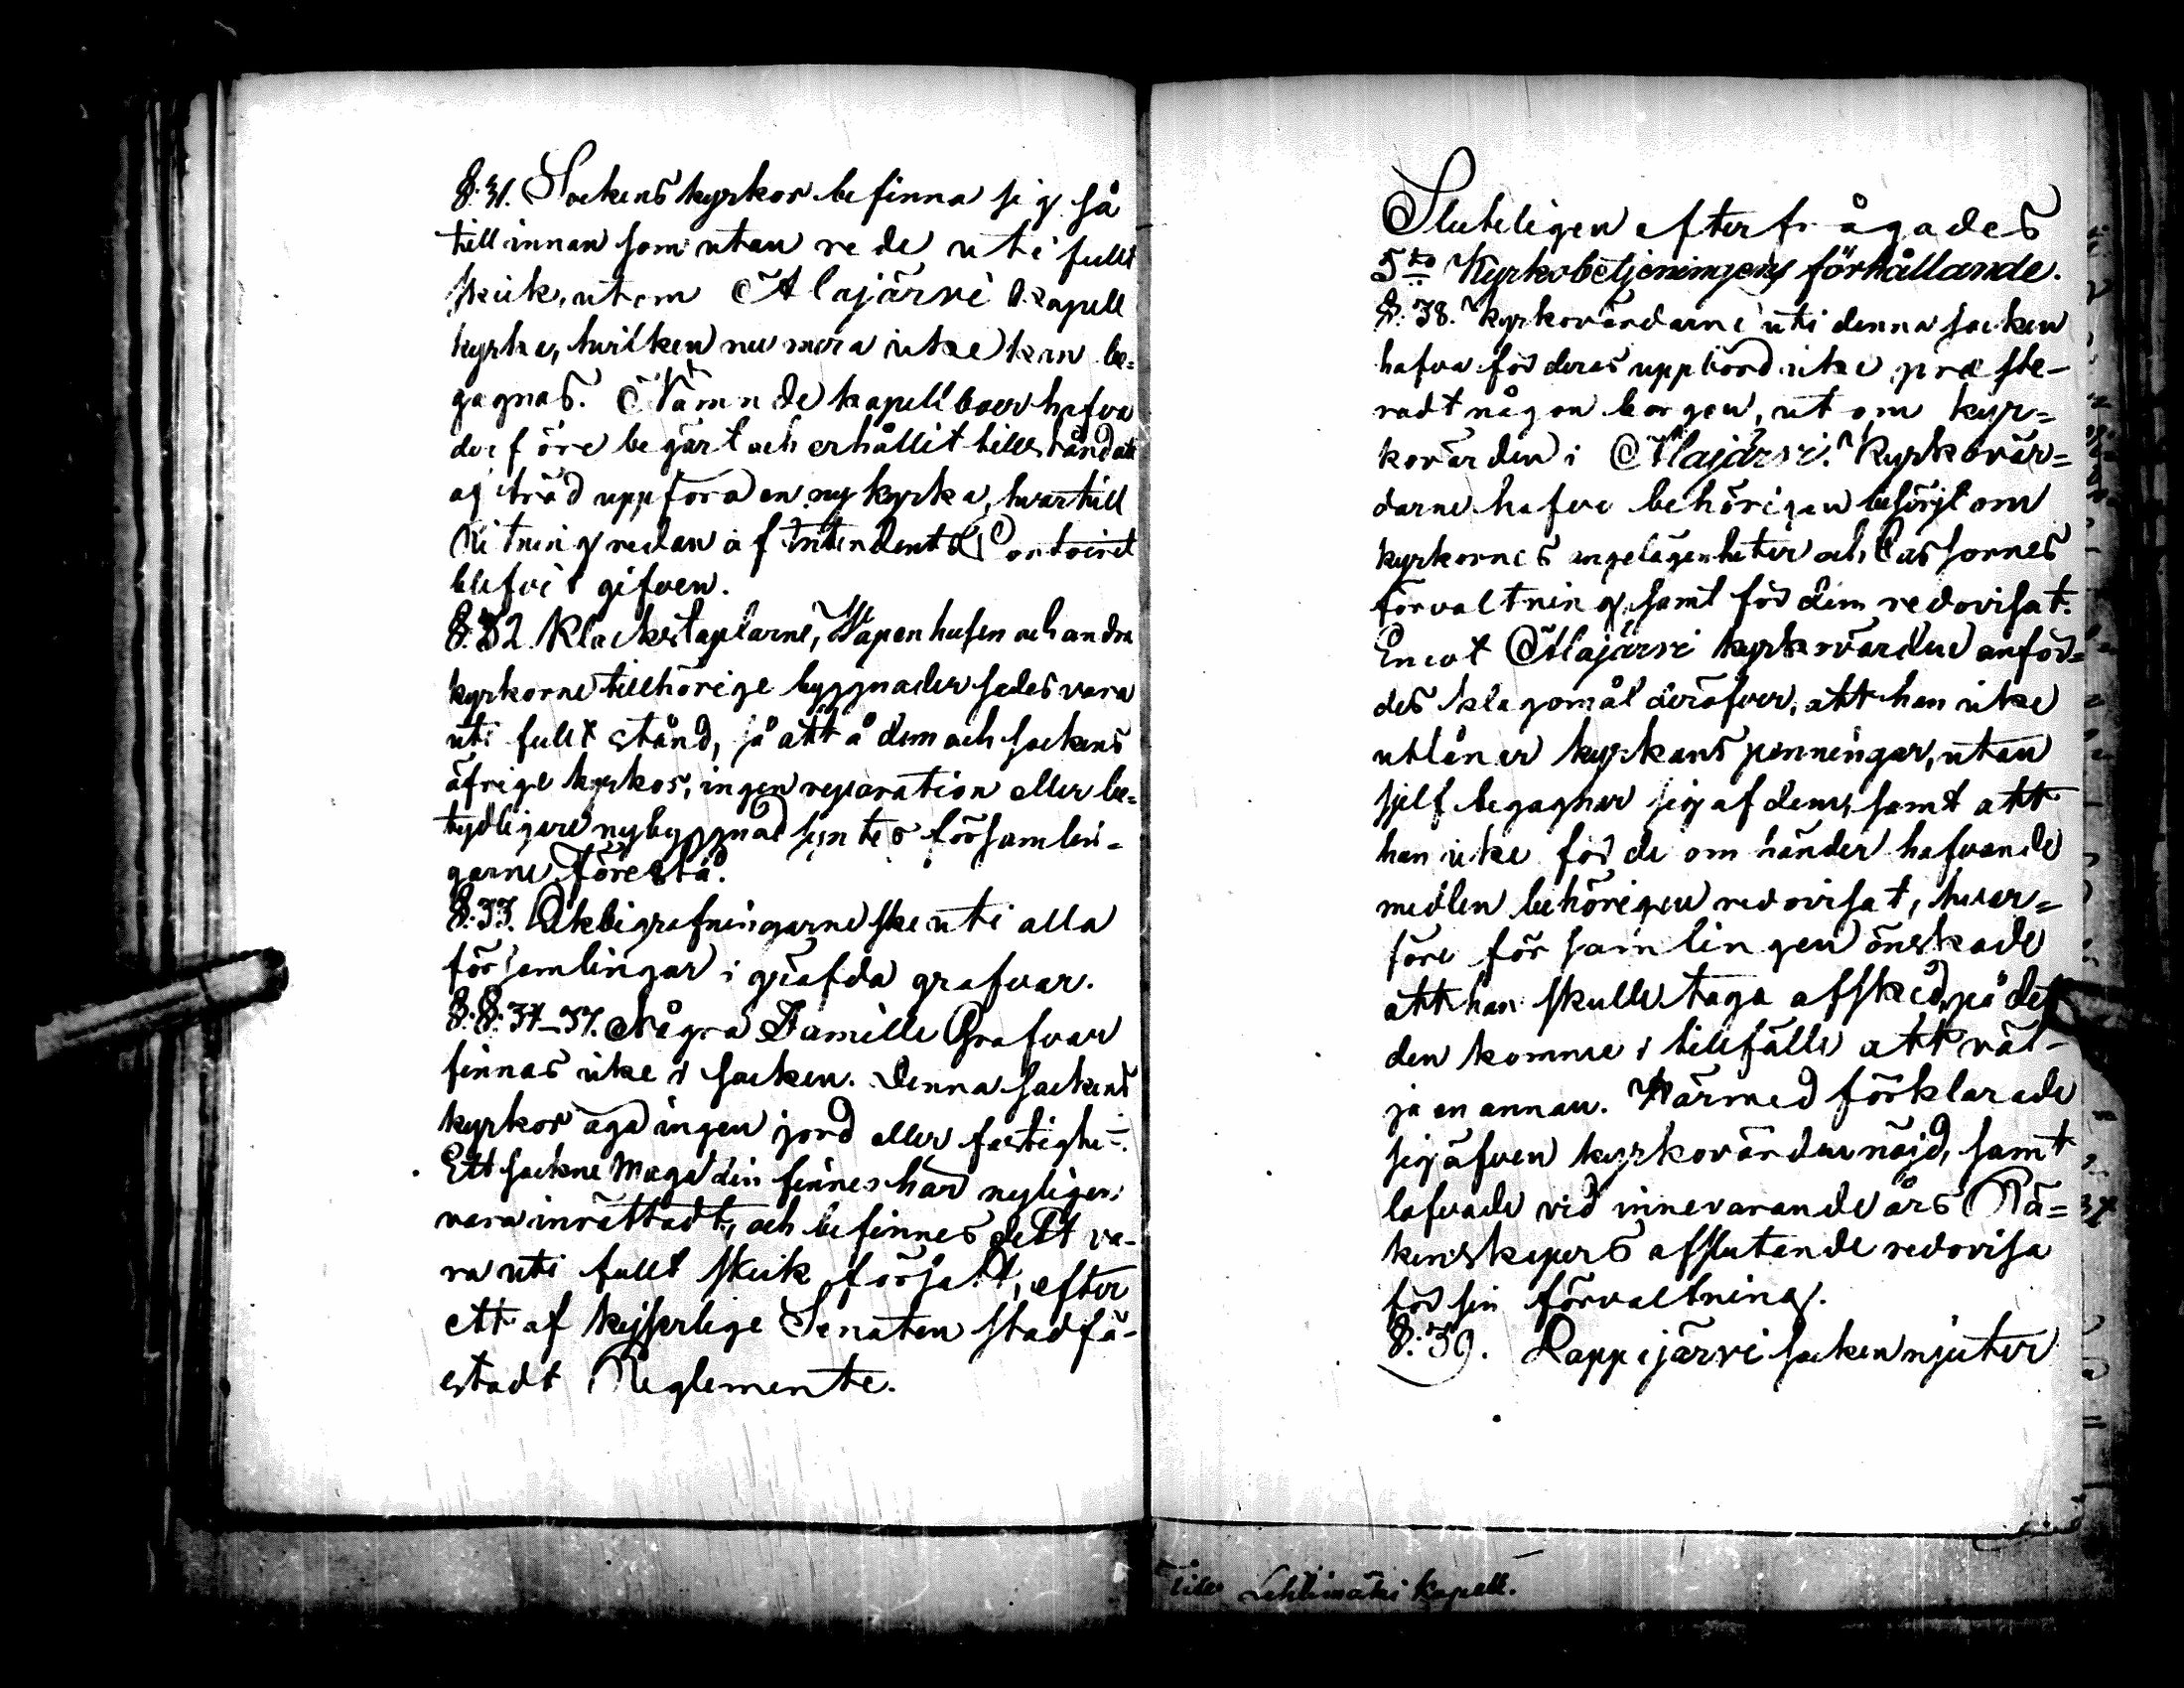 §. 31. Sockens kyrkor befinna sig så
till innan som utan rede uti fullt
skick, utom Alajärvi kapell
kyrka, hvilken nu mera icke kan be=
gagnas. Nämnde kapellboer hafva
derföre begärt och erhållit tillstånd att
af träd uppföra en ny kyrka, hvartill
Ritning redan af Intendents Contoiret
blifvit gifven.
§. 32. Klockstaplarne, Wapenhusen och andra
kyrkorne tillhörige byggnader sades vara
uti fullt stånd, så att å dem och sockens
äfrige kyrkor, ingen reparation eller be=
tydligare nybyggnad syntes församlin=
garne förestå.
§. 33. Likbegrafningarne ske uti alla
församlingar i gräfda grafvar.
§.§. 34–37. Några Famille Grafvar
finnas icke i socken. Denna sockens
kyrkor äga ingen jord eller fastighet.
Ett sockne Magazin finnes här nyligen
vara inrättadt, och befinnes dett va-
ra uti fullt skick försatt, efter
ett af kejserlige Senaten stadfä-
stadt Reglemente.
Sluteligen efterfrågades
5to Kyrkobetjeningens förhållande.
§. 38. Kyrkovärdarne uti denna socken
hafva för deras uppbörd icke præste-
radt någon borgen, utom kyr=
kovärden i Alajärvi. Kyrkovär=
darne hafva behörigen besörjt om
kyrkornes angelägenheter och Cassornes
förvaltning, samt för dem redovisat.
Emot Alajärvi kyrkovärden anför=
des klagomål deröfver, att han icke
utlåner kyrkans penningar, utan
sjelf begagnar sig af dem, samt att
han icke för de om händer hafvande
medlen behörigen redovisat, hvar=
före församlingen önskade
att han skulle taga afsked, på det
den komme i tillfälle att väl-
ja en annan. Härmed förklarade
sig äfven kyrkovärden nöjd, samt
lofvade vid innevarande års Rä=
kenskapers afslutande redovisa
för sin förvaltning.
§. 39. Lappajärvi socken njuter
Till Lehtimäki kapell.